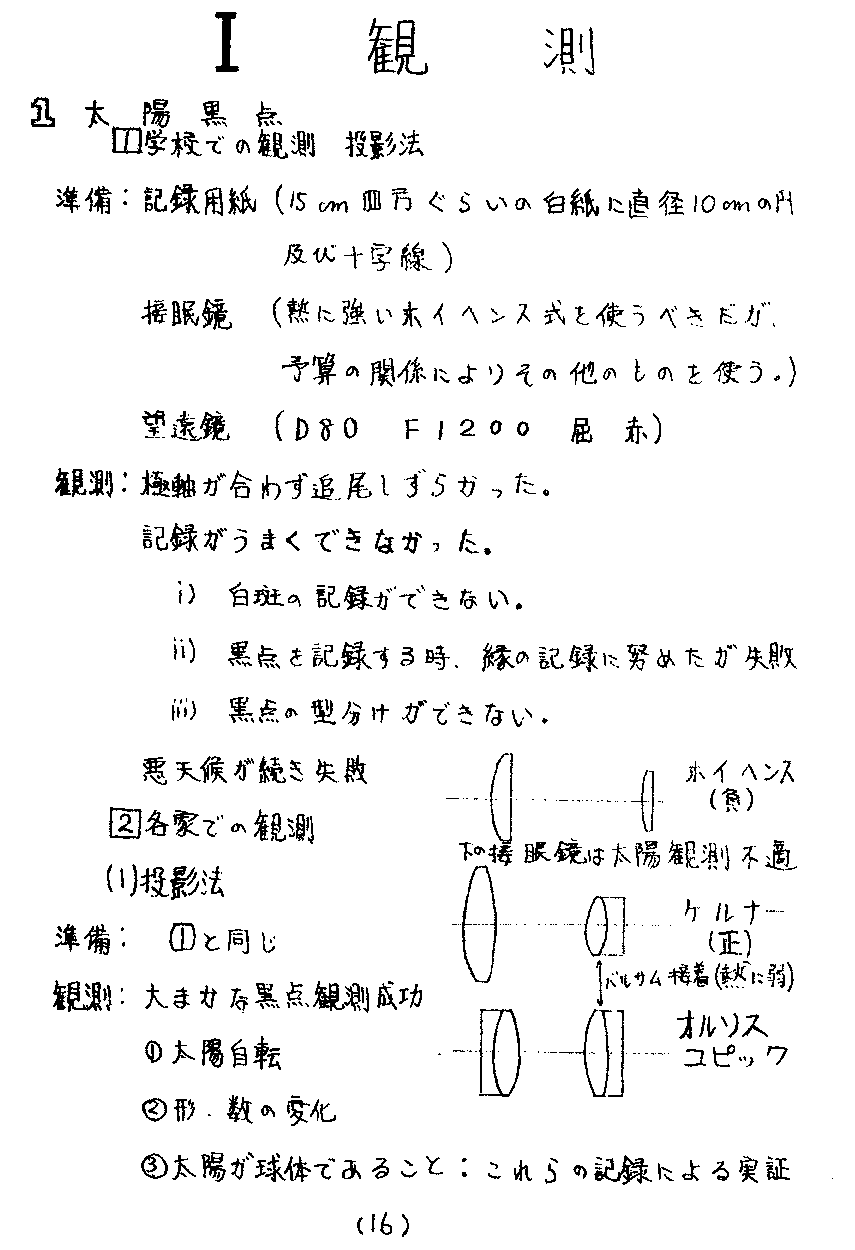 I 観測
1 太陽黒点
1 学校での観測 投影法
準備：記録用紙（15cm四方ぐらいの白紙に直径10cmの円
及び十字線）
接眼鏡（熱に強いホイヘンス式を使うべきだが、
予算の関係によりその他のものを使う。）
望遠鏡（D80 F1200 屈赤）
観測：極軸が合わず追尾しずらかった。
記録がうまくできなかった。
i) 白斑の記録ができない。
ii) 黒点を記録する時、縁の記録に努めたが失敗
iii) 黒点の型分けができない。
悪天候が続き失敗
2 各家での観測
(1)投影法
準備：1と同じ
観測：大まかな黒点観測成功
①太陽自転
②形、数の変化
③太陽が球体であること：これらの記録による実証
ホイヘンス
（負）
下の接眼鏡は太陽観測不適
ケルナー
（正）
バルサム接着（熱に弱）
オルソス
コピック
(16)